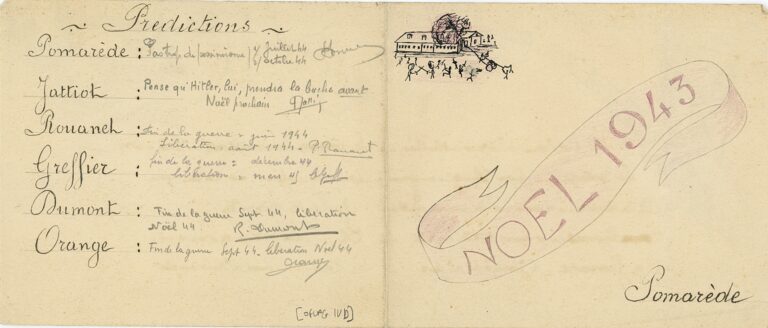 ~ Predictions ~
Pomarède : de pessimisme Juillet 44
Octobre 44
Jattiot : Pense qu'Hitler, lui, prendra la bûche avant
Noël prochain
Rouanet : Fin de la guerre = juin 1944
Libération août 1944 - P. Rouanet
Greffier : fin de la guerre = décembre 44
libération = mars 45
Dumont : Fin de la guerre Sept 44, libération
Noël 44 R. Dumont
Orange : Fin de la guerre Sept 44 - libération Noël 44
Orange
[OFLAG IV D]
NOEL 1943
Pomarède